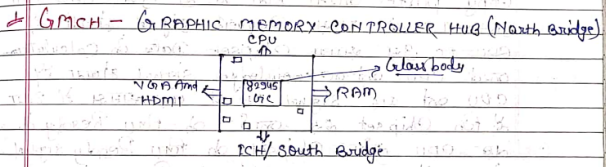 GMCH - GRAPHIC MEMORY CONTROLLER HUB (North Bridge)
CPU
Glass body
VGA And
HDMI
82945
GC
RAM
ICH/ South Bridge